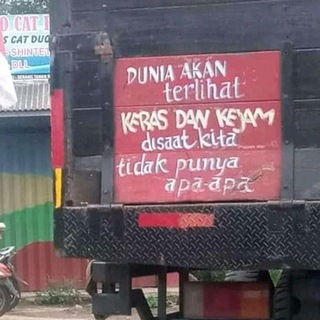 CAT DUC
SHINTE
DLL
DUNIA AKAN
terlihat
KERAS DAN KEJAM
disaat kita
tidak punya
apa-apa